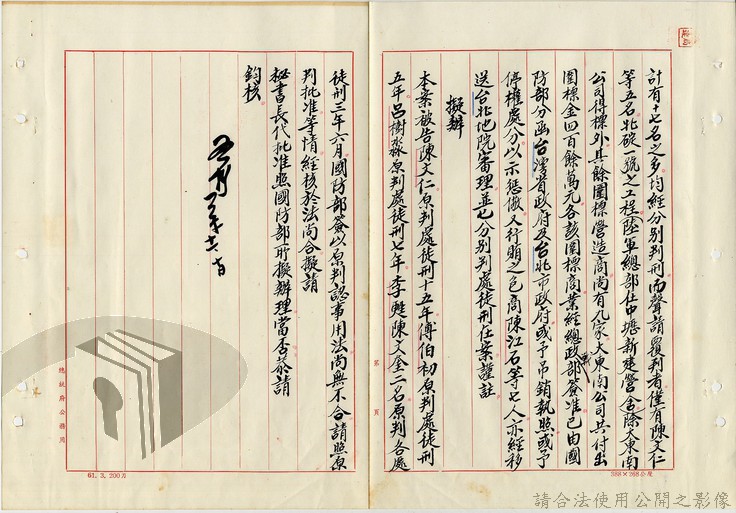 計有十七名之多均經分別判刑而聲請覆判者僅有陳文仁
等五名北碇一號之工程(陸軍總部在中壢新建營舍)除大東南
公司得標外其餘圍標營造商尚有九家大東南公司共付出
圍標金四百餘萬元各該圍標商業經總政戰部簽准已由國
防部分函台灣省政府及台北市政府或予吊銷執照或予
停權處分以示懲儆又行賄之包商陳江石等七人亦經移
送台北地院審理並已分別判處徒刑在案謹註
擬辦
本案被告陳文仁原判處徒刑十五年傅伯初原判處徒刑
五年呂樹淼原判處徒刑七年李 陳文金二名原判各處
徒刑三年六月國防部簽以原判認事用法尚無不合請照原
判批准等情經核於法尚合擬請
秘書長代批准照國防部所擬辦理當否恭請
鈞核
第 頁
總統府公務用
61. 3. 200刀
388×268公厘
請合法使用公開之影像